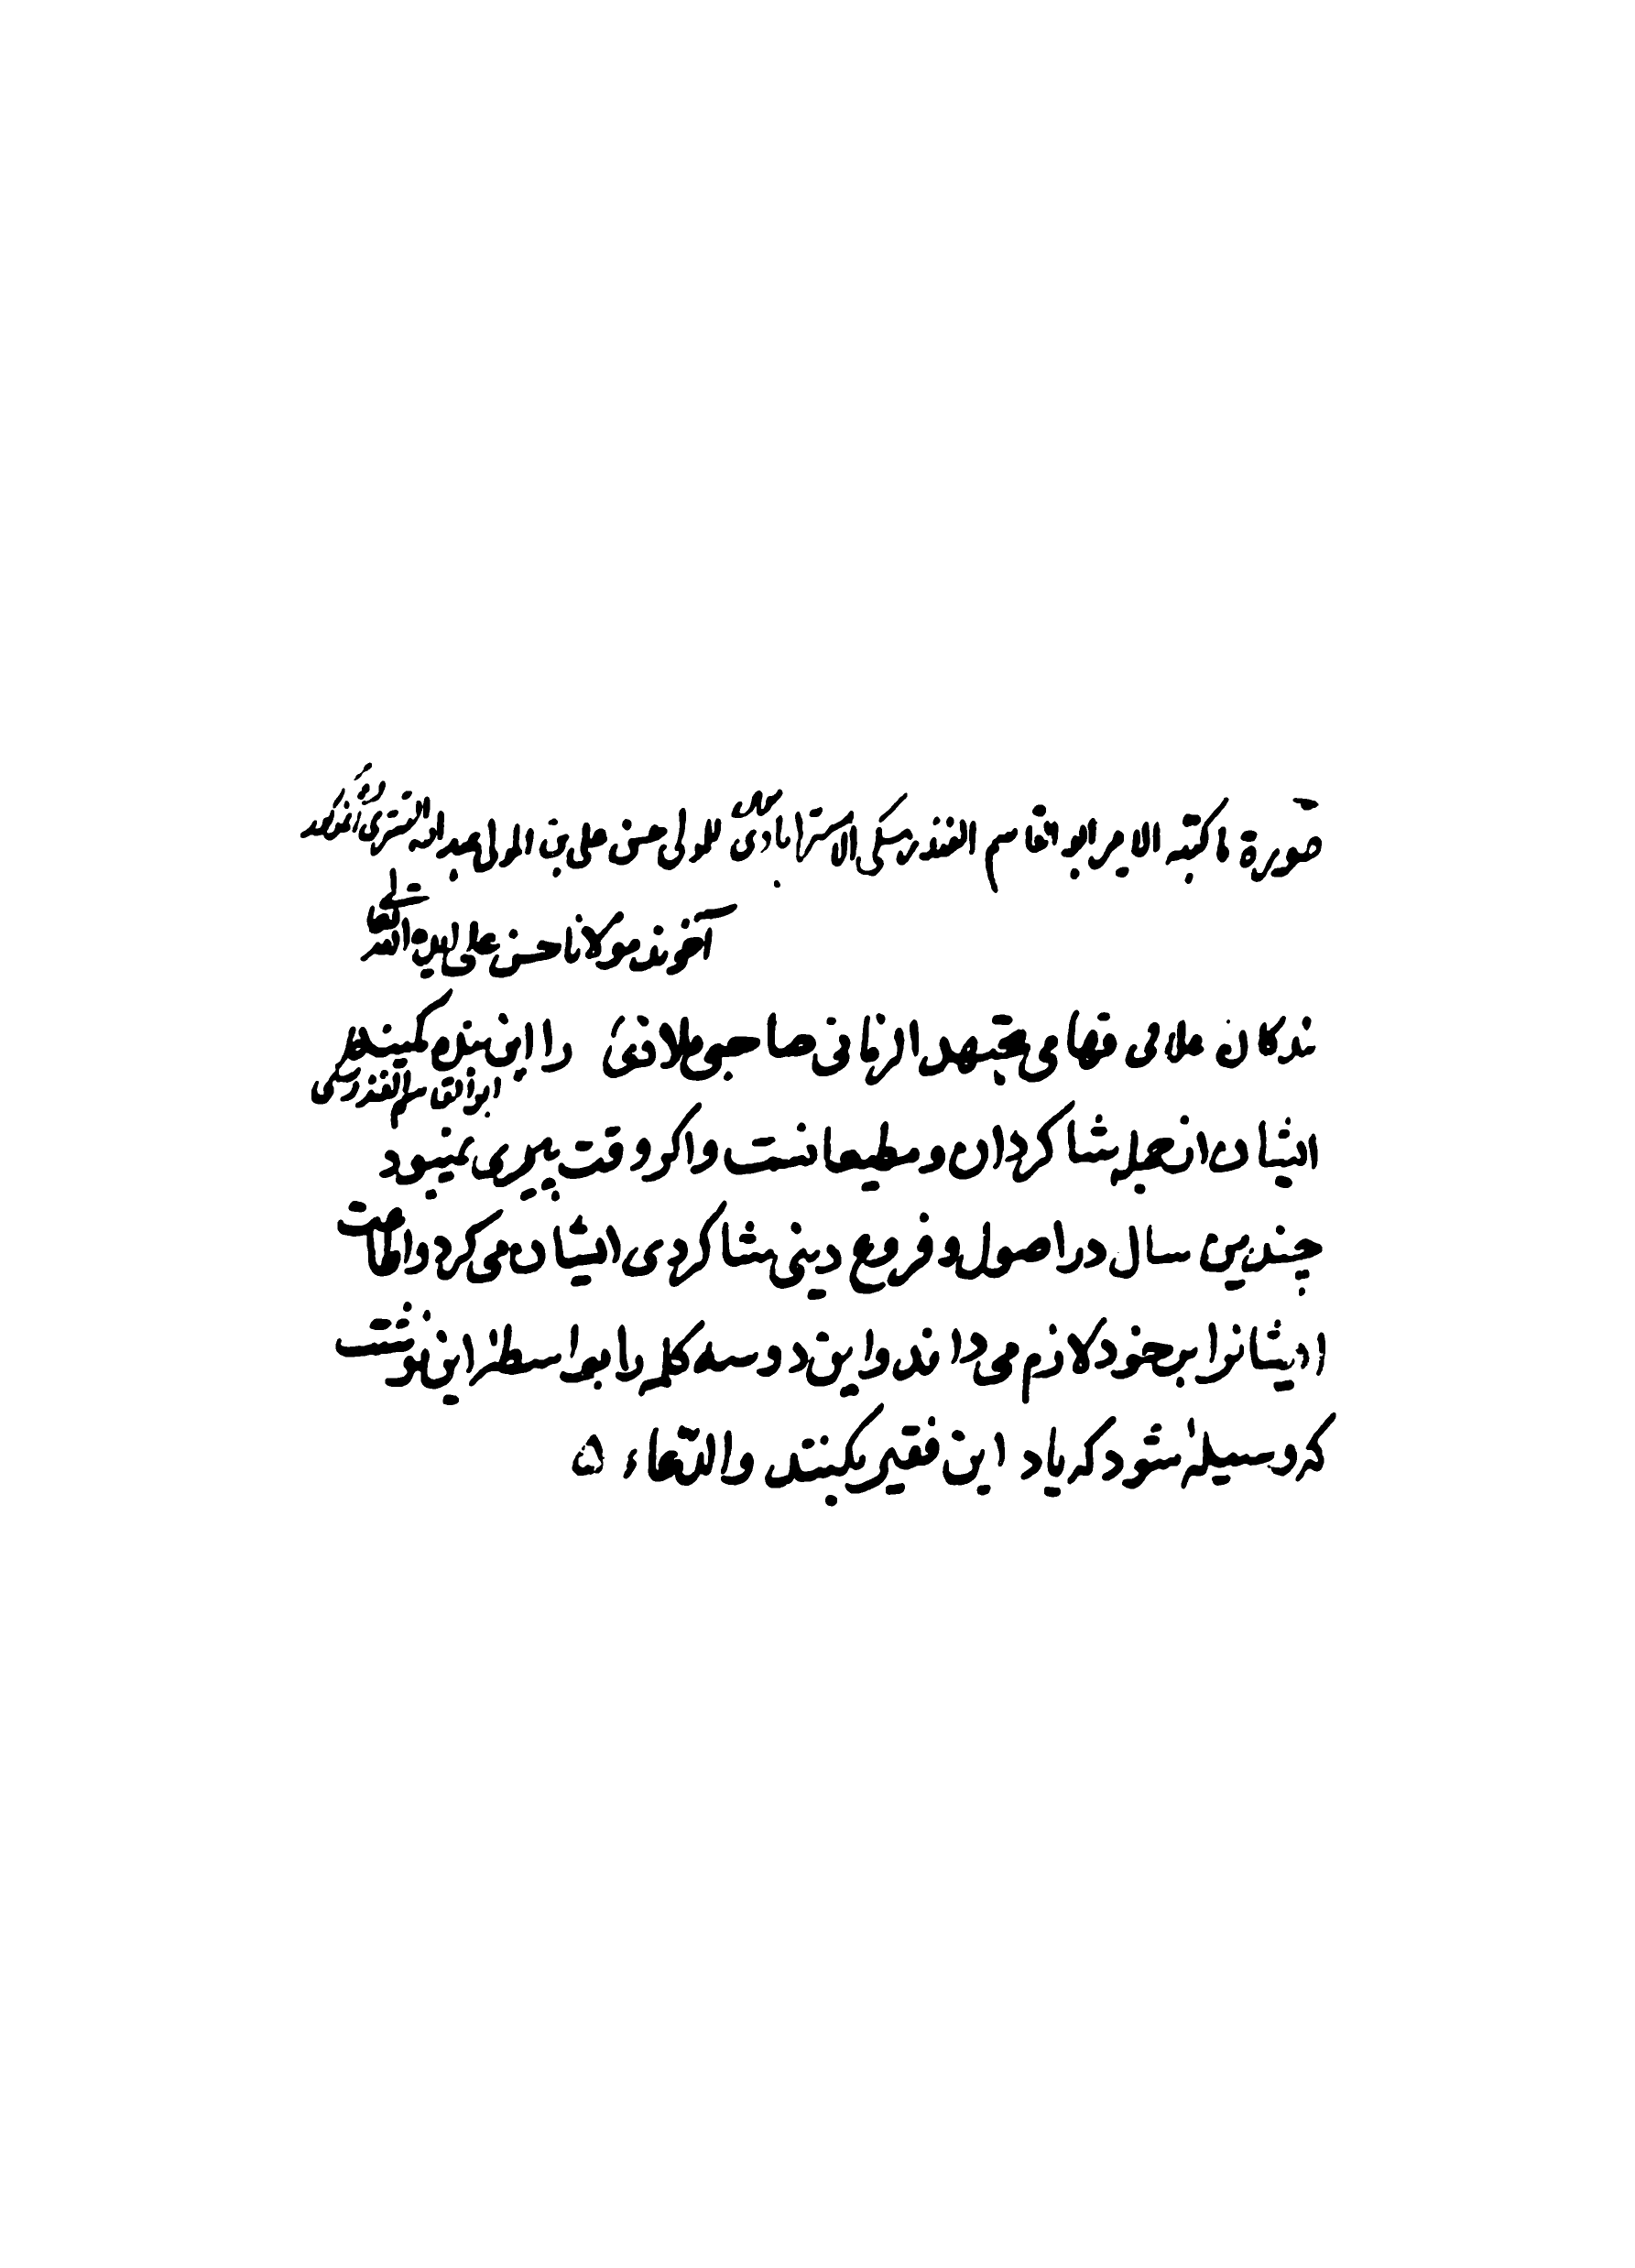 صورة ما كتبه الامير ابو القاسم الفندرسكى الاسترابادى للمولى حسن على بن المولى عبد الله التسترى
آخوند مولانا حسن على ايده الله تعالى
بندكان علامى فهامى مجتهد الزمانى صاحبى ملاذى را اين بنده كمينه
ابو القاسم الفندرسكى
ايشان از جمله شاكردان و مطيعانست و اكر وقت پيرى نميبود
چندين سال در اصول و فروع دينى شاكردى ايشان مى كرد و اطاعت
ايشانرا بر خود لازم مى داند و اين دو سه كلمه را بواسطه اين نوشت
كه وسيله شود كه ياد اين فقير بكنند والدعاء